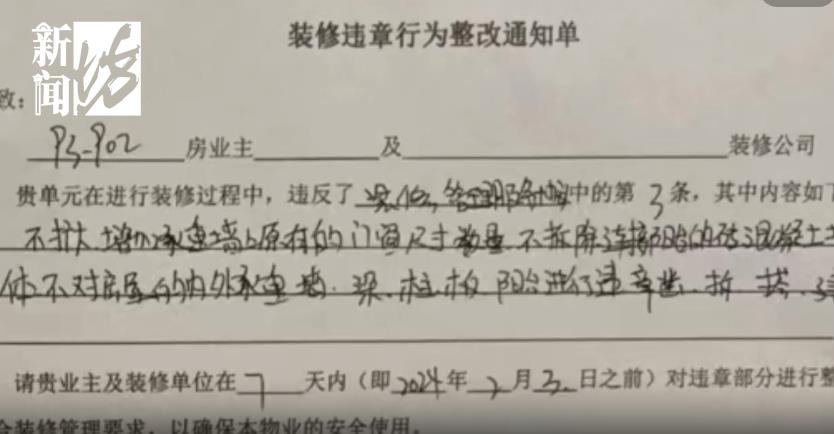 新闻
装修违章行为整改通知单
致：
93-902 房业主 及 装修公司
贵单元在进行装修过程中，违反了 装修管理 中的第 3 条，其中内容如下
不扩大增加承重墙上原有的门窗尺寸数量 不拆除连接阳台的砖混凝土
体不对房屋的内外承重墙、梁、柱、板、阳台进行违章凿、拆、搭、
请贵业主及装修单位在 7 天内（即 2024 年 2 月 3 日之前）对违章部分进行整
合装修管理要求，以确保本物业的安全使用。